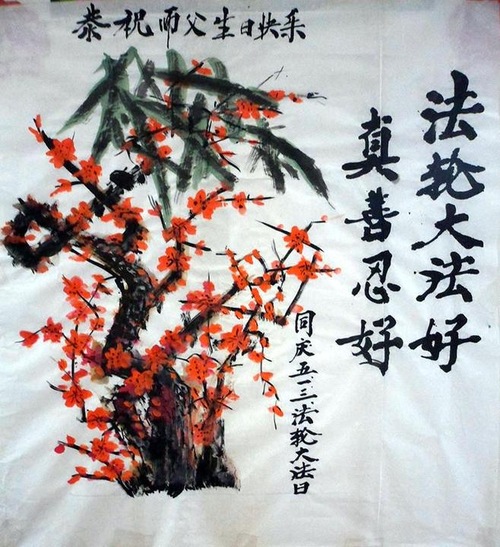 恭祝师父生日快乐
法轮大法好
真善忍好
同庆五.一三.法轮大法日